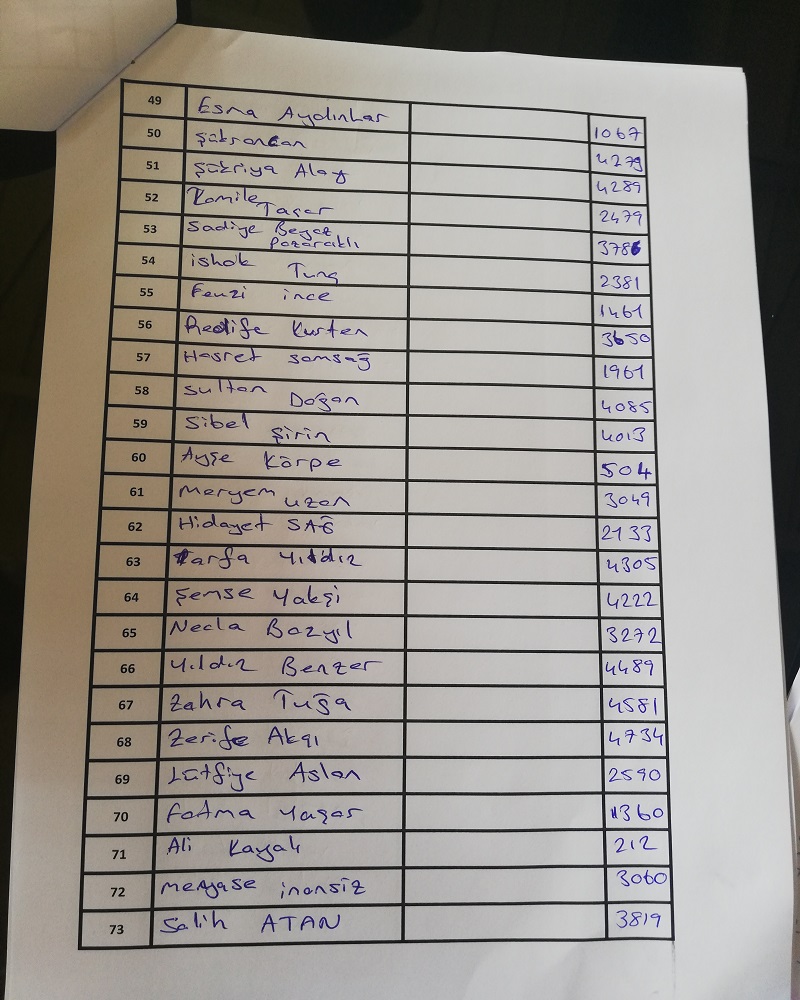 49 Esma Aydınhar 1067
50 Şükrancan 4279
51 Şükriya Alay 4289
52 Kamile Taçar 2479
53 Sadiye Beyaz Pazarcıklı 3786
54 ishak Tunç 2381
55 Fevzi ince 1461
56 Redife Kurten 3650
57 Hasret samsağ 1961
58 Sultan Doğan 4085
59 Sibel Şirin 4013
60 Ayşe Körpe 504
61 Meryem uzen 3049
62 Hidayet SAĞ 2133
63 Tarfa Yıldız 4305
64 Şemse Yakşi 4222
65 Necla Bozyıl 3272
66 Yıldız Benzer 4489
67 Zahra Tuğa 4581
68 Zerife Akçı 4734
69 Lütfiye Aslan 2590
70 Fatma Yaşar 1360
71 Ali Kayalı 212
72 inansiz 3060
73 Salih ATAN 3819